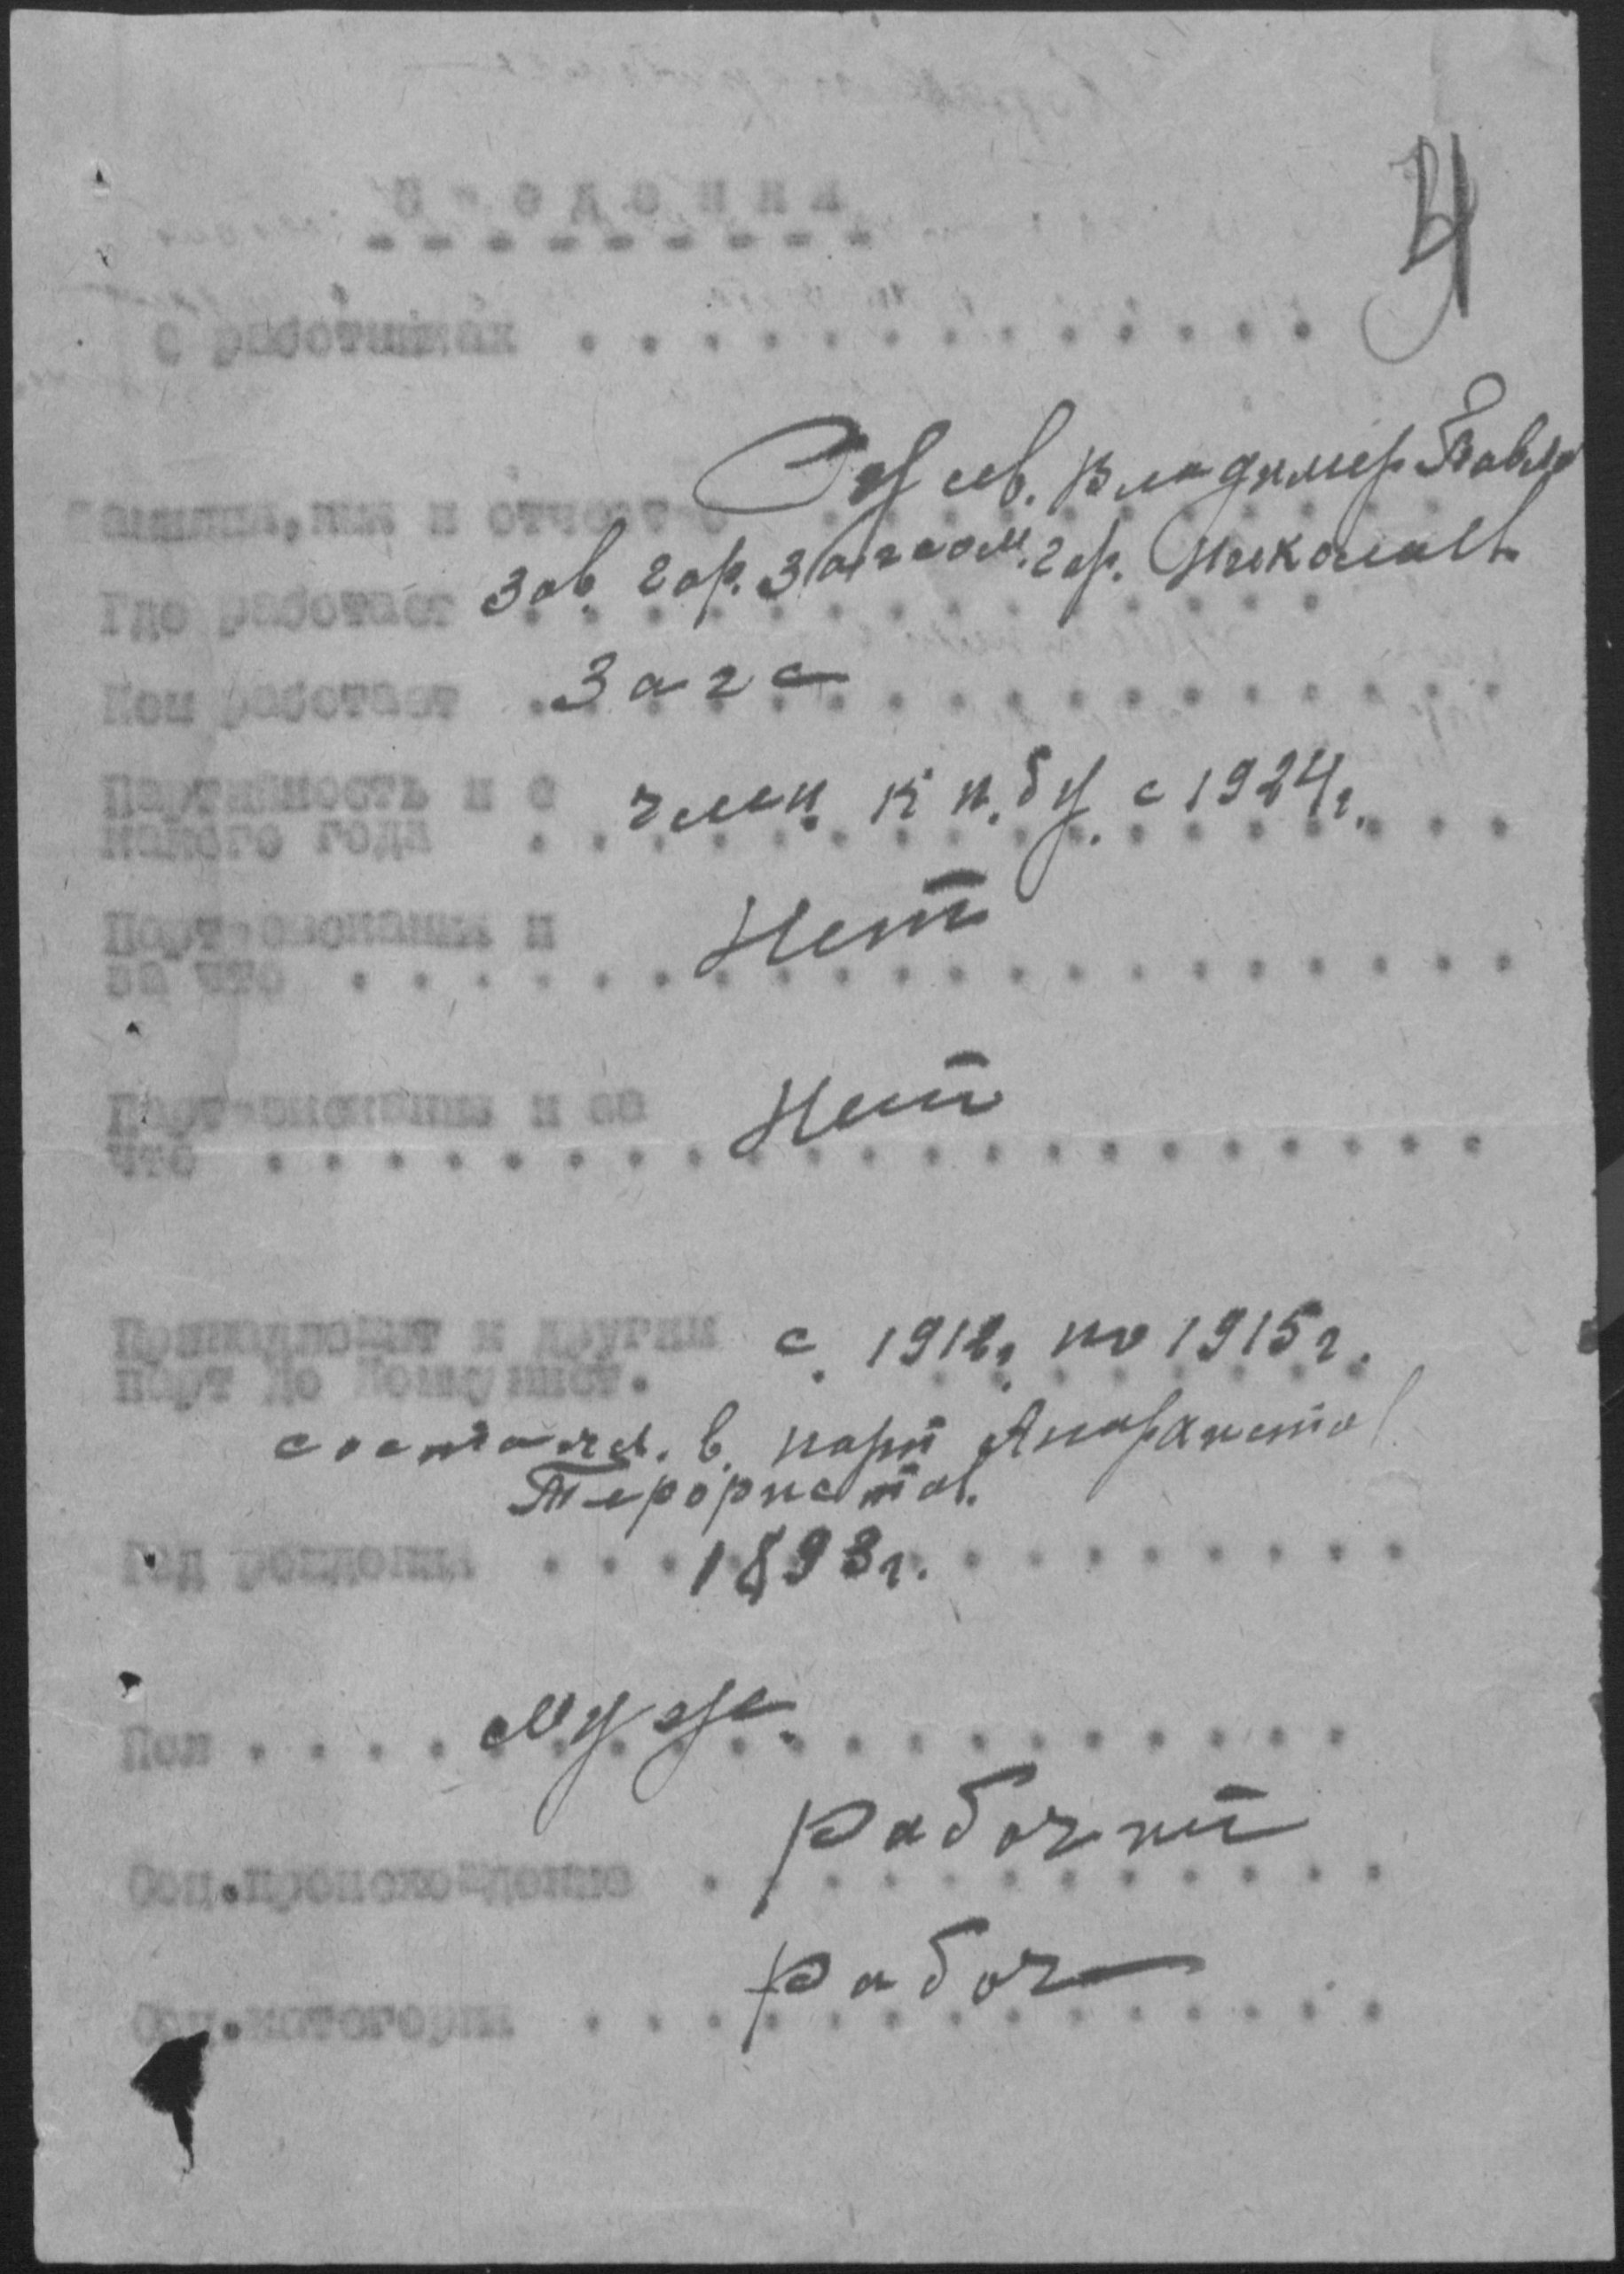 Сведения
о работниках . . . . . . . . . . . . .
Владимер Павло
Фамилия, имя и отчество
Где работает Зав. гор. Загсом. гор. Николаев.
Кем работает Загс
Партийность и с
какого года член. К п. бу. с 1924 г.
Партвзыскания и
за что Нет
Партвзыскания и за
что Нет
Принадлежит к другим
парт до Коммунист. с. 1912 г. по 1915 г.
состоял. в. парт Анархистов
Терористов.
Год рождения 1893 г.
Пол муж.
Соц.происхождение рабочий
Соц.котегория рабоч